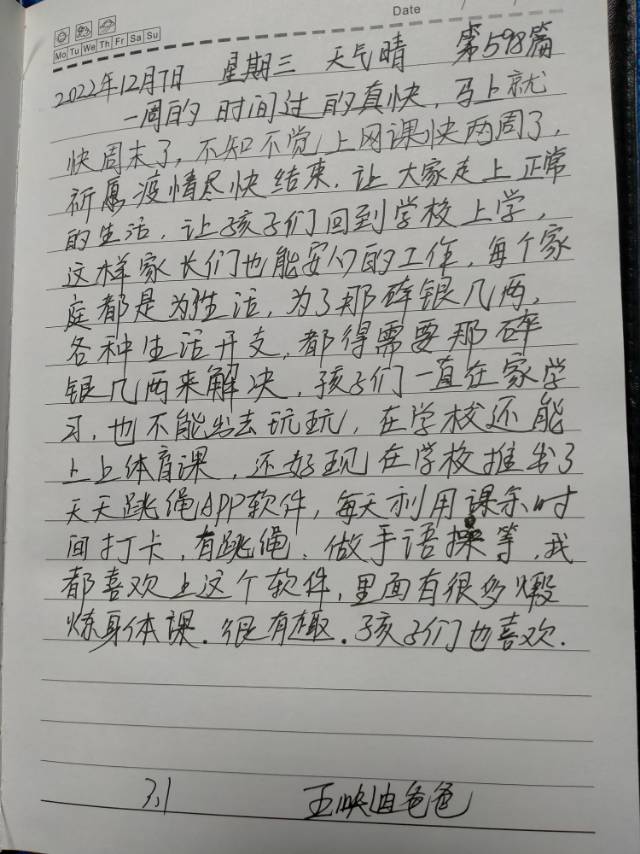 Date
Mo Tu We Th Fr Sa Su
2022年12月7日 星期三 天气晴 第598篇
一周的时间过的真快,马上就
快周末了,不知不觉上网课快两周了,
祈愿疫情尽快结束,让大家走上正常
的生活,让孩子们回到学校上学,
这样家长们也能安心的工作,每个家
庭都是为生活,为了那碎银几两,
各种生活开支,都得需要那碎
银几两来解决,孩子们一直在家学
习,也不能出去玩玩,在学校还能
上上体育课,还好现在学校推出了
天天跳绳APP软件,每天利用课余时
间打卡,有跳绳,做手语操等,我
都喜欢上这个软件,里面有很多煅
炼身体课.很有趣.孩子们也喜欢.
3,1 爸爸